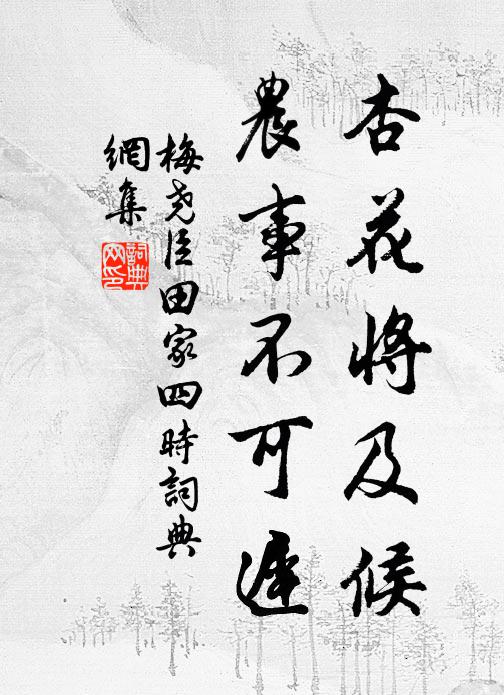 杏花將及候
農事不可遲
梅堯臣田家四時詞典
網集
詞典網印